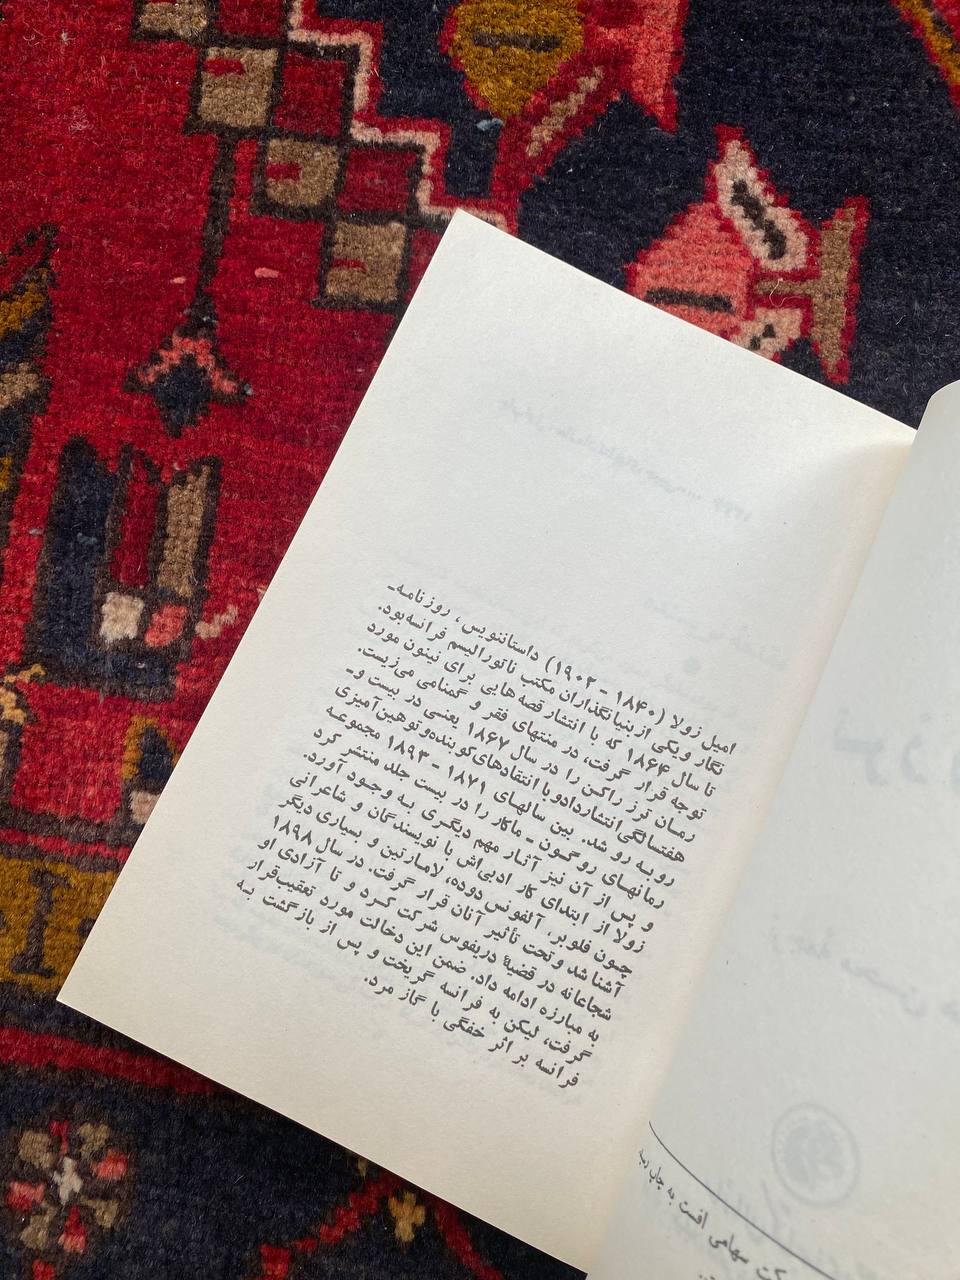 امیل زولا (۱۸۴۰ - ۱۹۰۲) داستاننویس، روزنامه‌ـ
نگار و یکی از بنیانگذاران مکتب ناتورالیسم فرانسه بود.
تا سال ۱۸۶۴ که با انتشار قصه‌هایی برای نینون مورد
توجه قرار گرفت، در منتهای فقر و گمنامی می‌زیست.
رمان ترز راکن را در سال ۱۸۶۷ یعنی در بیست و ـ
هفتسالگی انتشار داد و با انتقادهای کوبنده و توهین‌آمیزی
روبه رو شد. بین سالهای ۱۸۷۱ - ۱۸۹۳ مجموعه
رمانهای روگون ـ ماکار را در بیست جلد منتشر کرد
و پس از آن نیز آثار مهم دیگری به وجود آورد.
زولا از ابتدای کار ادبی‌اش با نویسندگان و شاعرانی
چون فلوبر، آلفونس دوده، لامارتین و بسیاری دیگر
آشنا شد و تحت تأثیر آنان قرار گرفت. در سال ۱۸۹۸
شجاعانه در قضیهٔ دریفوس شرکت کرد و تا آزادی او
به مبارزه ادامه داد. ضمن این دخالت مورد تعقیب قرار
گرفت، لیکن به فرانسه گریخت و پس از بازگشت به
فرانسه بر اثر خفگی با گاز مرد.
کت سهامی افست به چاپ رسید